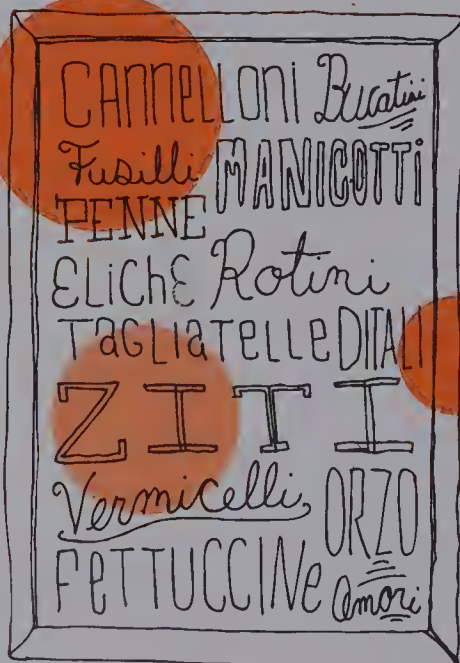 CANNELLONI Bucatini
Fusilli MANICOTTI
PENNE
ELICHE Rotini
TAGLIATELLE DITALI
ZITI
Vermicelli ORZO
FETTUCCINE Amori